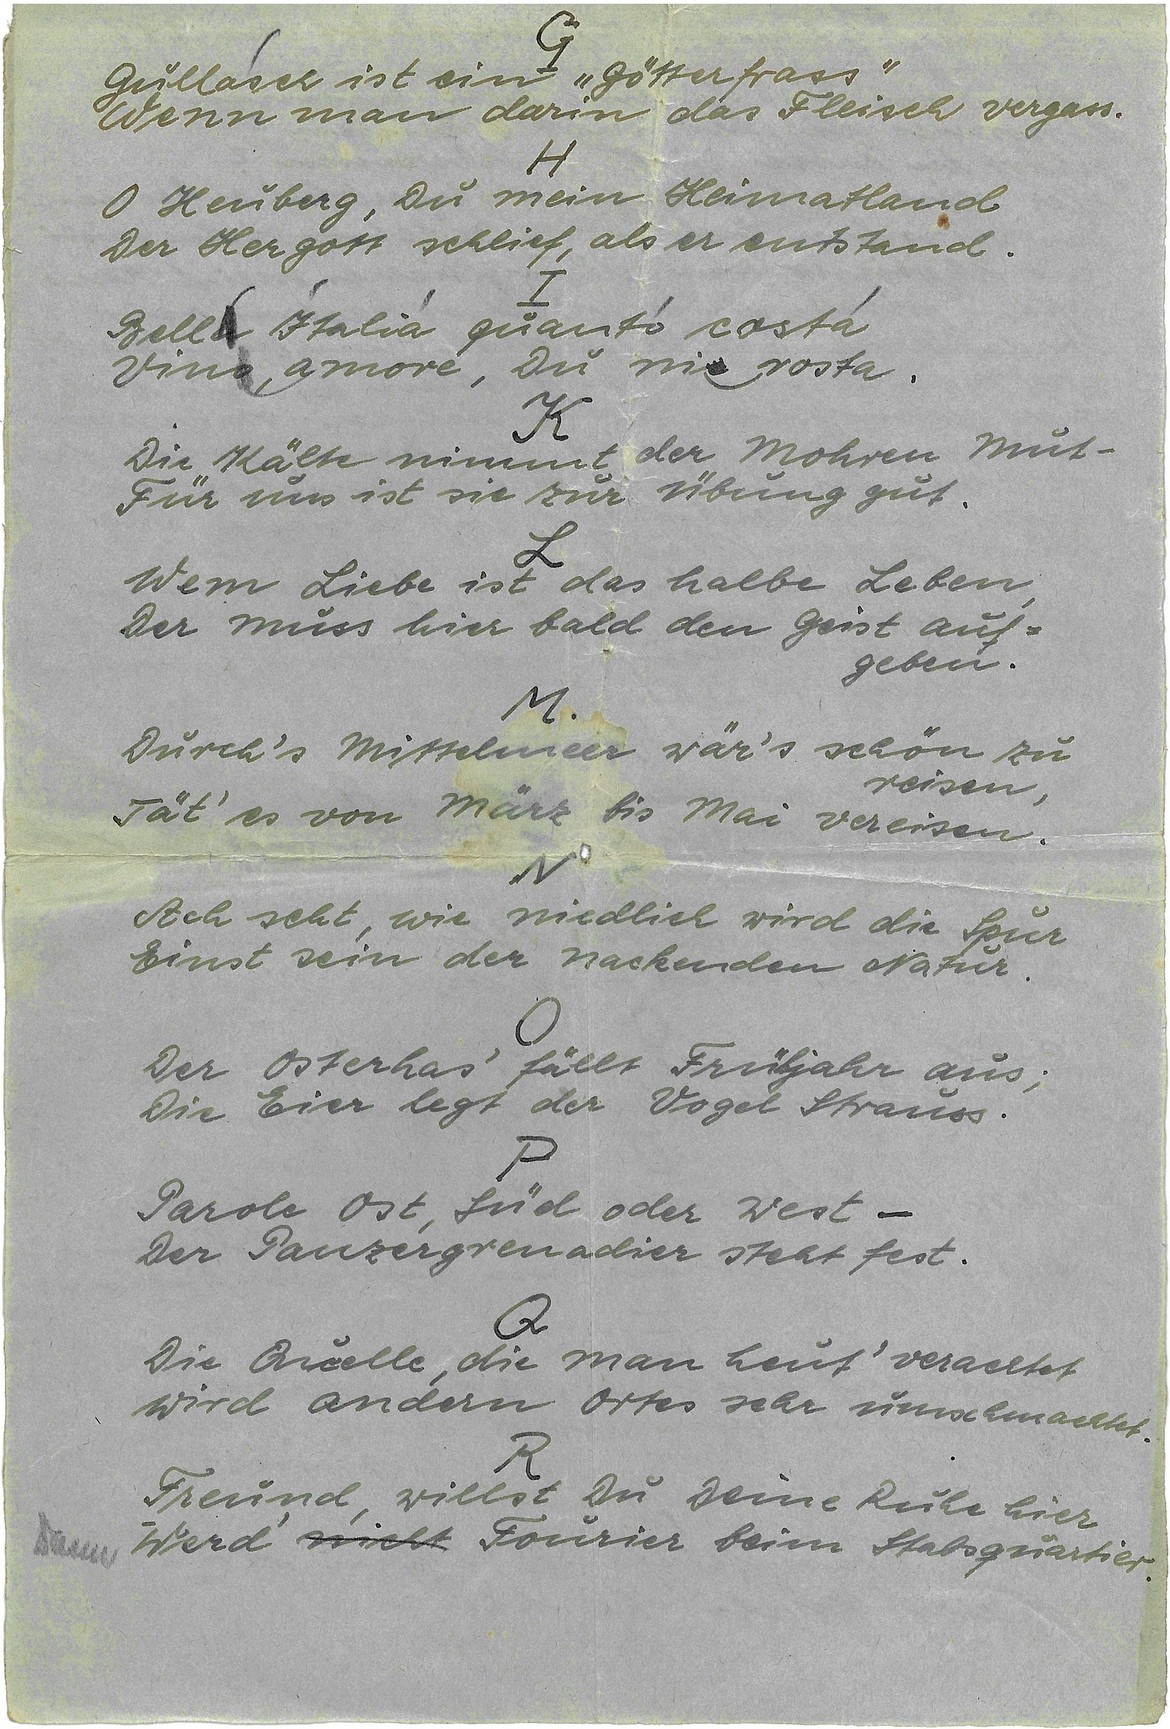 G
Gulláser ist ein „Götterfrass"
Wenn man darin das Fleisch vergass.
H
O Heuberg, Du mein Heimatland
Der Hergott schlief, als er entstand.
I
Bella Itáliá quantó costá
Vino, amore, Du nie rosta.
K
Die Kälte nimmt der Mohren Mut-
Für uns ist sie zur Übung gut.
L
Wem Liebe ist das halbe Leben,
Der muss hier bald den Geist auf=
geben.
M.
Durch's Mittelmeer wär's schön zu
reisen,
Tät' es von März bis Mai vereisen.
N
Ach seht, wie niedlich wird die Spur
Einst sein der nackenden Natur.
O
Der Osterhas' fällt Frühjahr aus;
Die Eier legt der Vogel Strauss.
P
Parole Ost, Süd oder West —
Der Panzergrenadier steht fest.
Q
Die Quelle, die man heut' verachtet
Wird andern Ortes sehr umschmachtet.
R
Freund, willst Du Deine Ruhe hier
Dann Werd' nicht Fourier beim Stabsquartier.